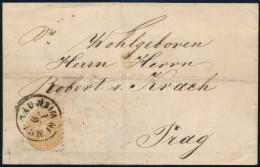 Pr.
Wohlgeboren
Herrn Herrn
Robert v. Krach
Prag